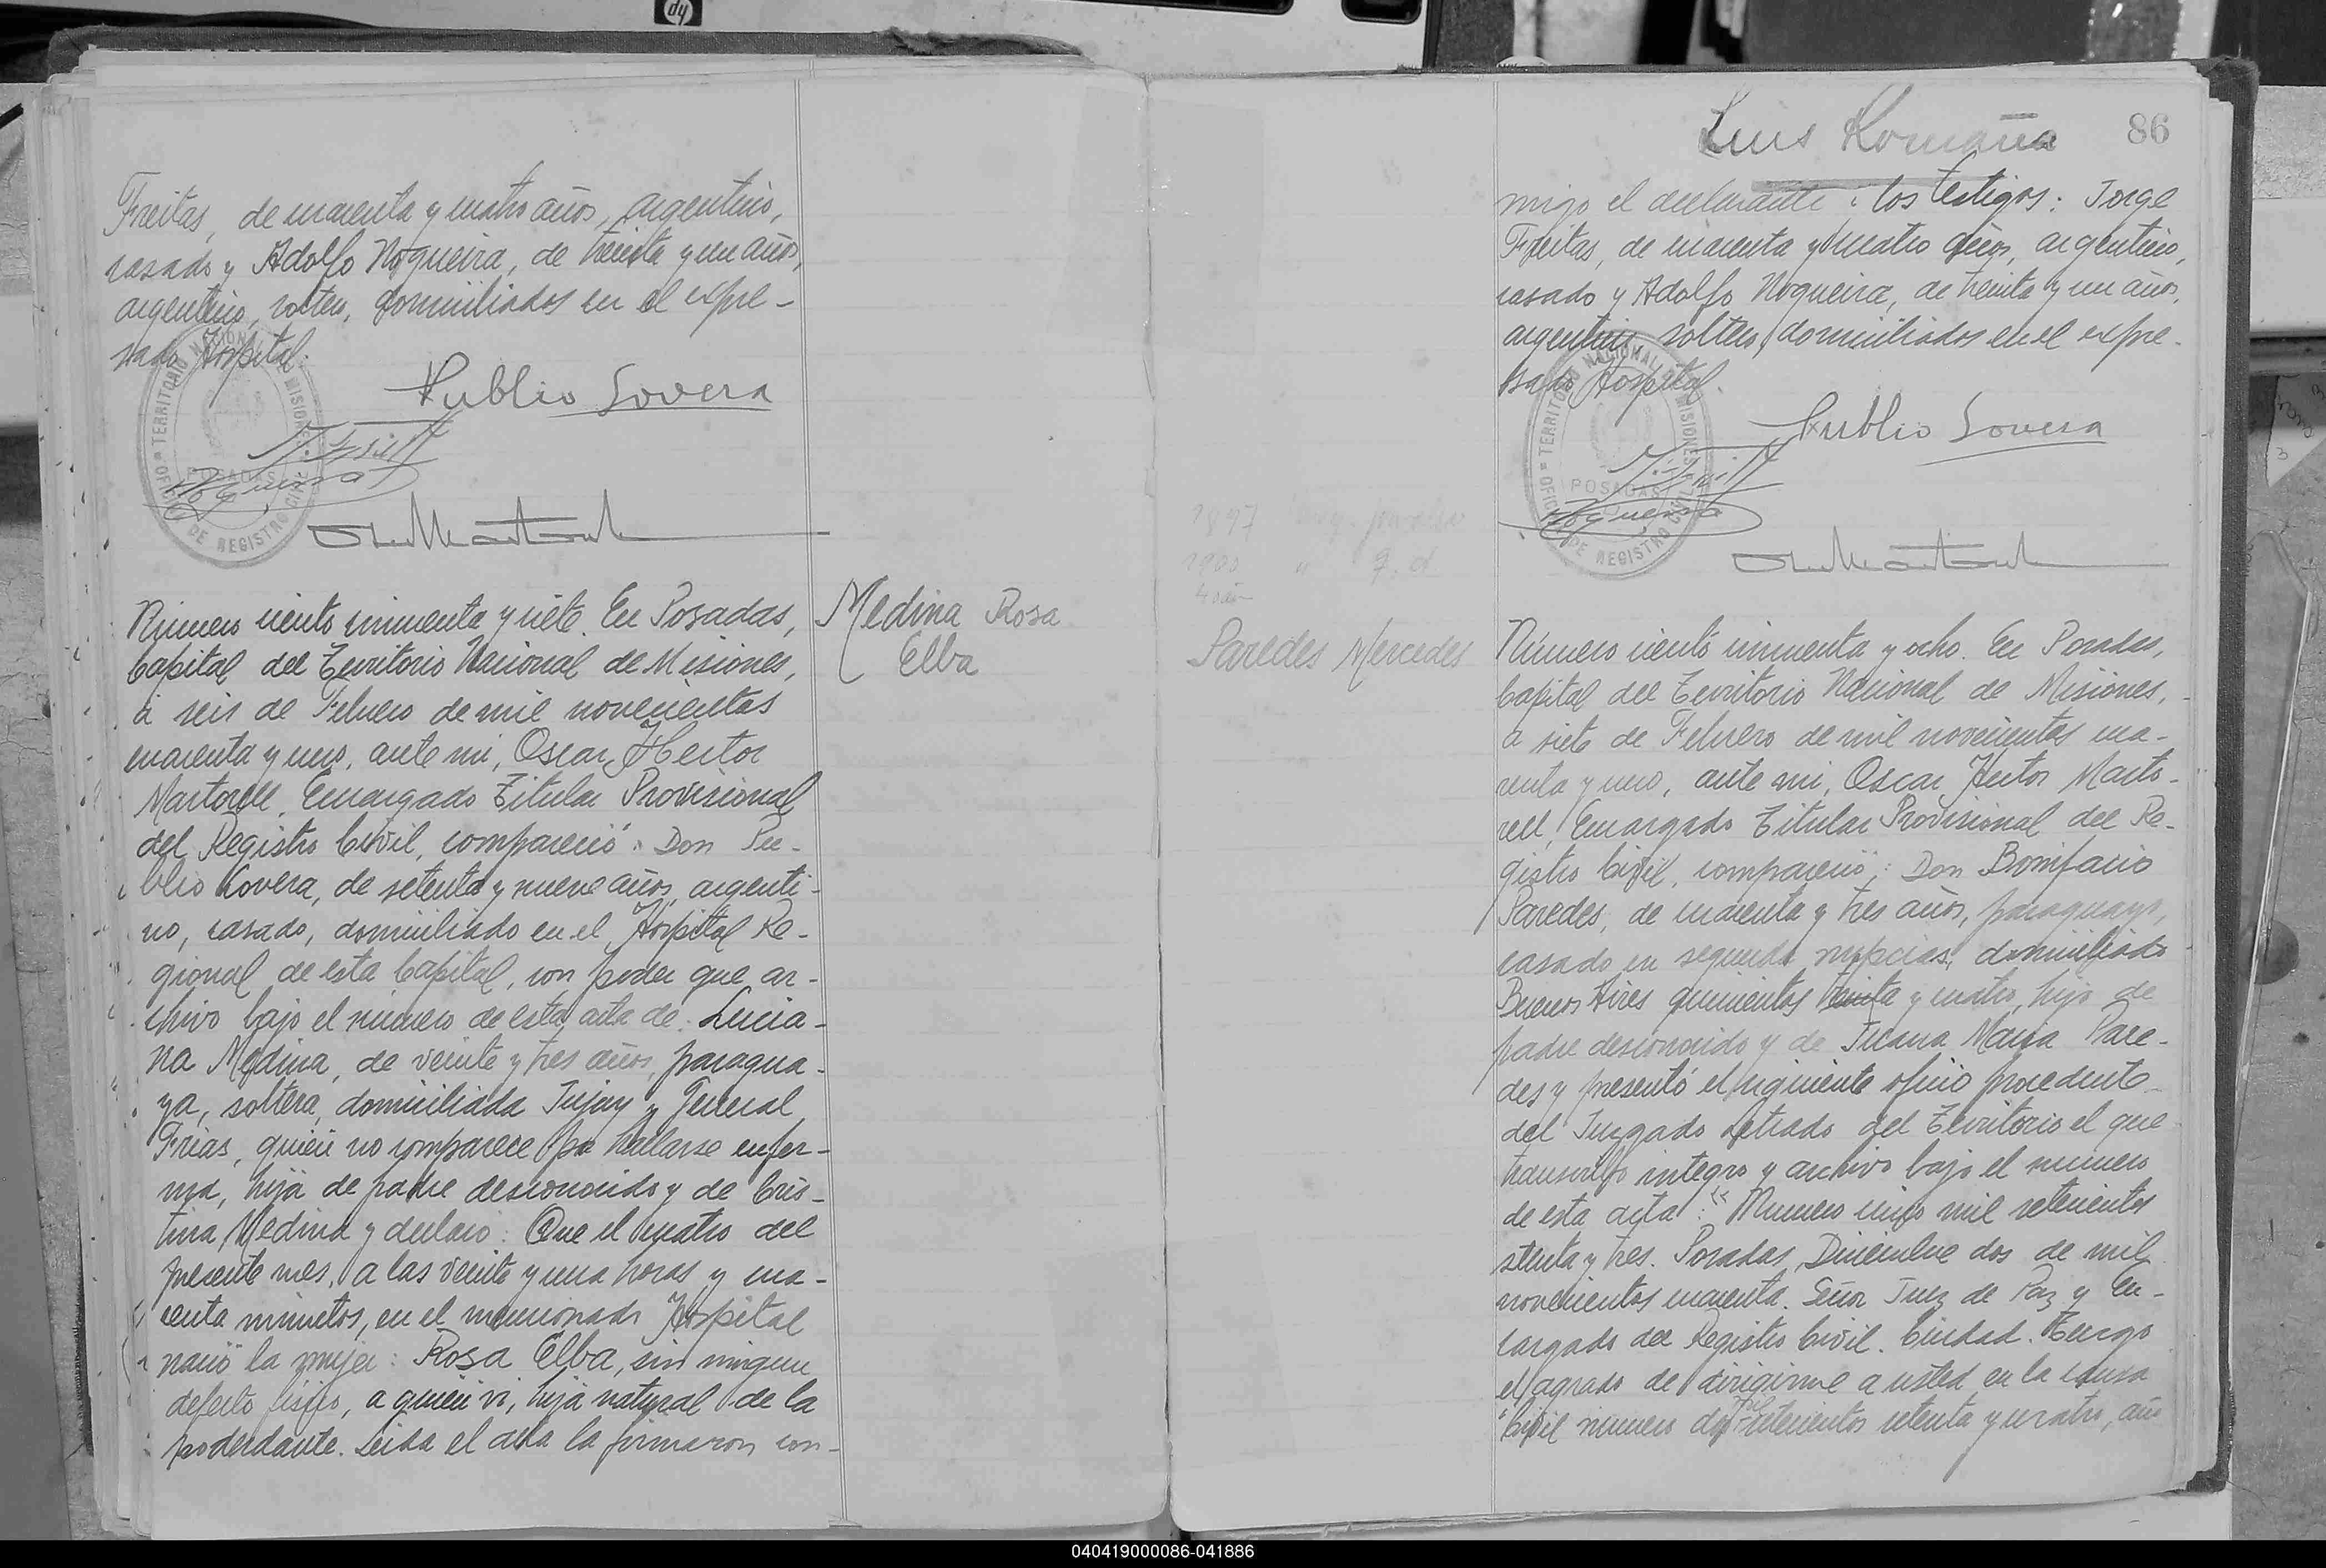 Freitas, de cuarenta y cuatro años, argentino,
casado y Adolfo Nogueira, de treinta y un años,
argentino, soltero, domiciliados en el expre-
sado Hospital.
Publio Lovera
TERRITORIO NACIONAL MISIONES
POSADAS
OFICINA DE REGISTRO CIVIL
Número ciento cincuenta y siete. En Posadas,
Capital del Territorio Nacional de Misiones,
a seis de Febrero de mil novecientos
cuarenta y uno, ante mi, Oscar Hector
Martorell, Encargado Titular Provisional
del Registro Civil, compareció: Don Pu-
blio Lovera, de setenta y nueve años, argenti-
no, casado, domiciliado en el Hospital Re-
gional de esta Capital, con poder que ar-
chivo bajo el número de esta acta de: Lucia-
na Medina, de veinte y tres años, paragua-
ya, soltera, domiciliada Jujuy y General
Frias, quien no comparece por hallarse enfer-
ma, hija de padre desconocido y de Cris-
tina Medina y declaró: Que el cuatro del
presente mes, a las veinte y una horas y cua-
renta minutos, en el mencionado Hospital
nació la mujer: Rosa Elba, sin ningun
defecto físico, a quien vi, hija natural de la
poderdante. Leida el acta la firmaron con-
Medina Rosa
Elba
Luis Romaña
86
migo el declarante i los testigos: Jorge
Freitas, de cuarenta y cuatro años, argentino,
casado y Adolfo Nogueira, de treinta y un años,
argentino, soltero, domiciliados en el expre-
sado Hospital.
Publio Lovera
TERRITORIO NACIONAL MISIONES
POSADAS
OFICINA DE REGISTRO CIVIL
1897
Paredes Mercedes
Número ciento cincuenta y ocho. En Posadas,
Capital del Territorio Nacional de Misiones,
a siete de Febrero de mil novecientos cua-
renta y uno, ante mi, Oscar Hector Marto-
rell, Encargado Titular Provisional del Re-
gistro Civil, compareció: Don Bonifacio
Paredes, de cuarenta y tres años, paraguayo,
casado en segunda nupcias, domiciliado
Buenos Aires quinientos treinta y cuatro, hijo de
padre desconocido y de Juana Maria Pare-
des y presentó el siguiente oficio procedente
del Juzgado Letrado del Territorio el que
transcribo integro y archivo bajo el número
de esta acta: "Número cinco mil setecientos
setenta y tres. Posadas, Diciembre dos de mil
novecientos cuarenta. Señor Juez de Paz y En-
cargado del Registro Civil. Ciudad. Tengo
el agrado de dirigirme a usted en la causa
"Civil número dos mil setecientos setenta y cuatro, año
040419000086-041886